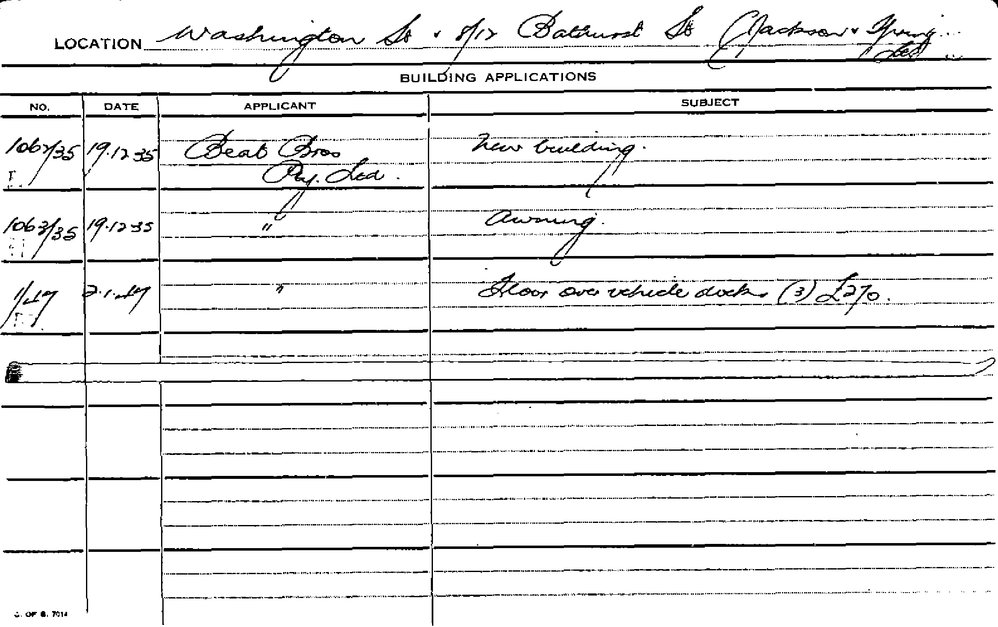 LOCATION Washington St & 8/12 Bathurst St (Jackson & Spring
Ltd
BUILDING APPLICATIONS
NO. DATE APPLICANT SUBJECT
1062/35 19.12.35 Beat Bros New building.
Pty. Ltd.
1063/35 19.12.35 " Awning.
1/47 2.1.47 " Floor over vehicle docks (3) £270.
C. OF S. 7014